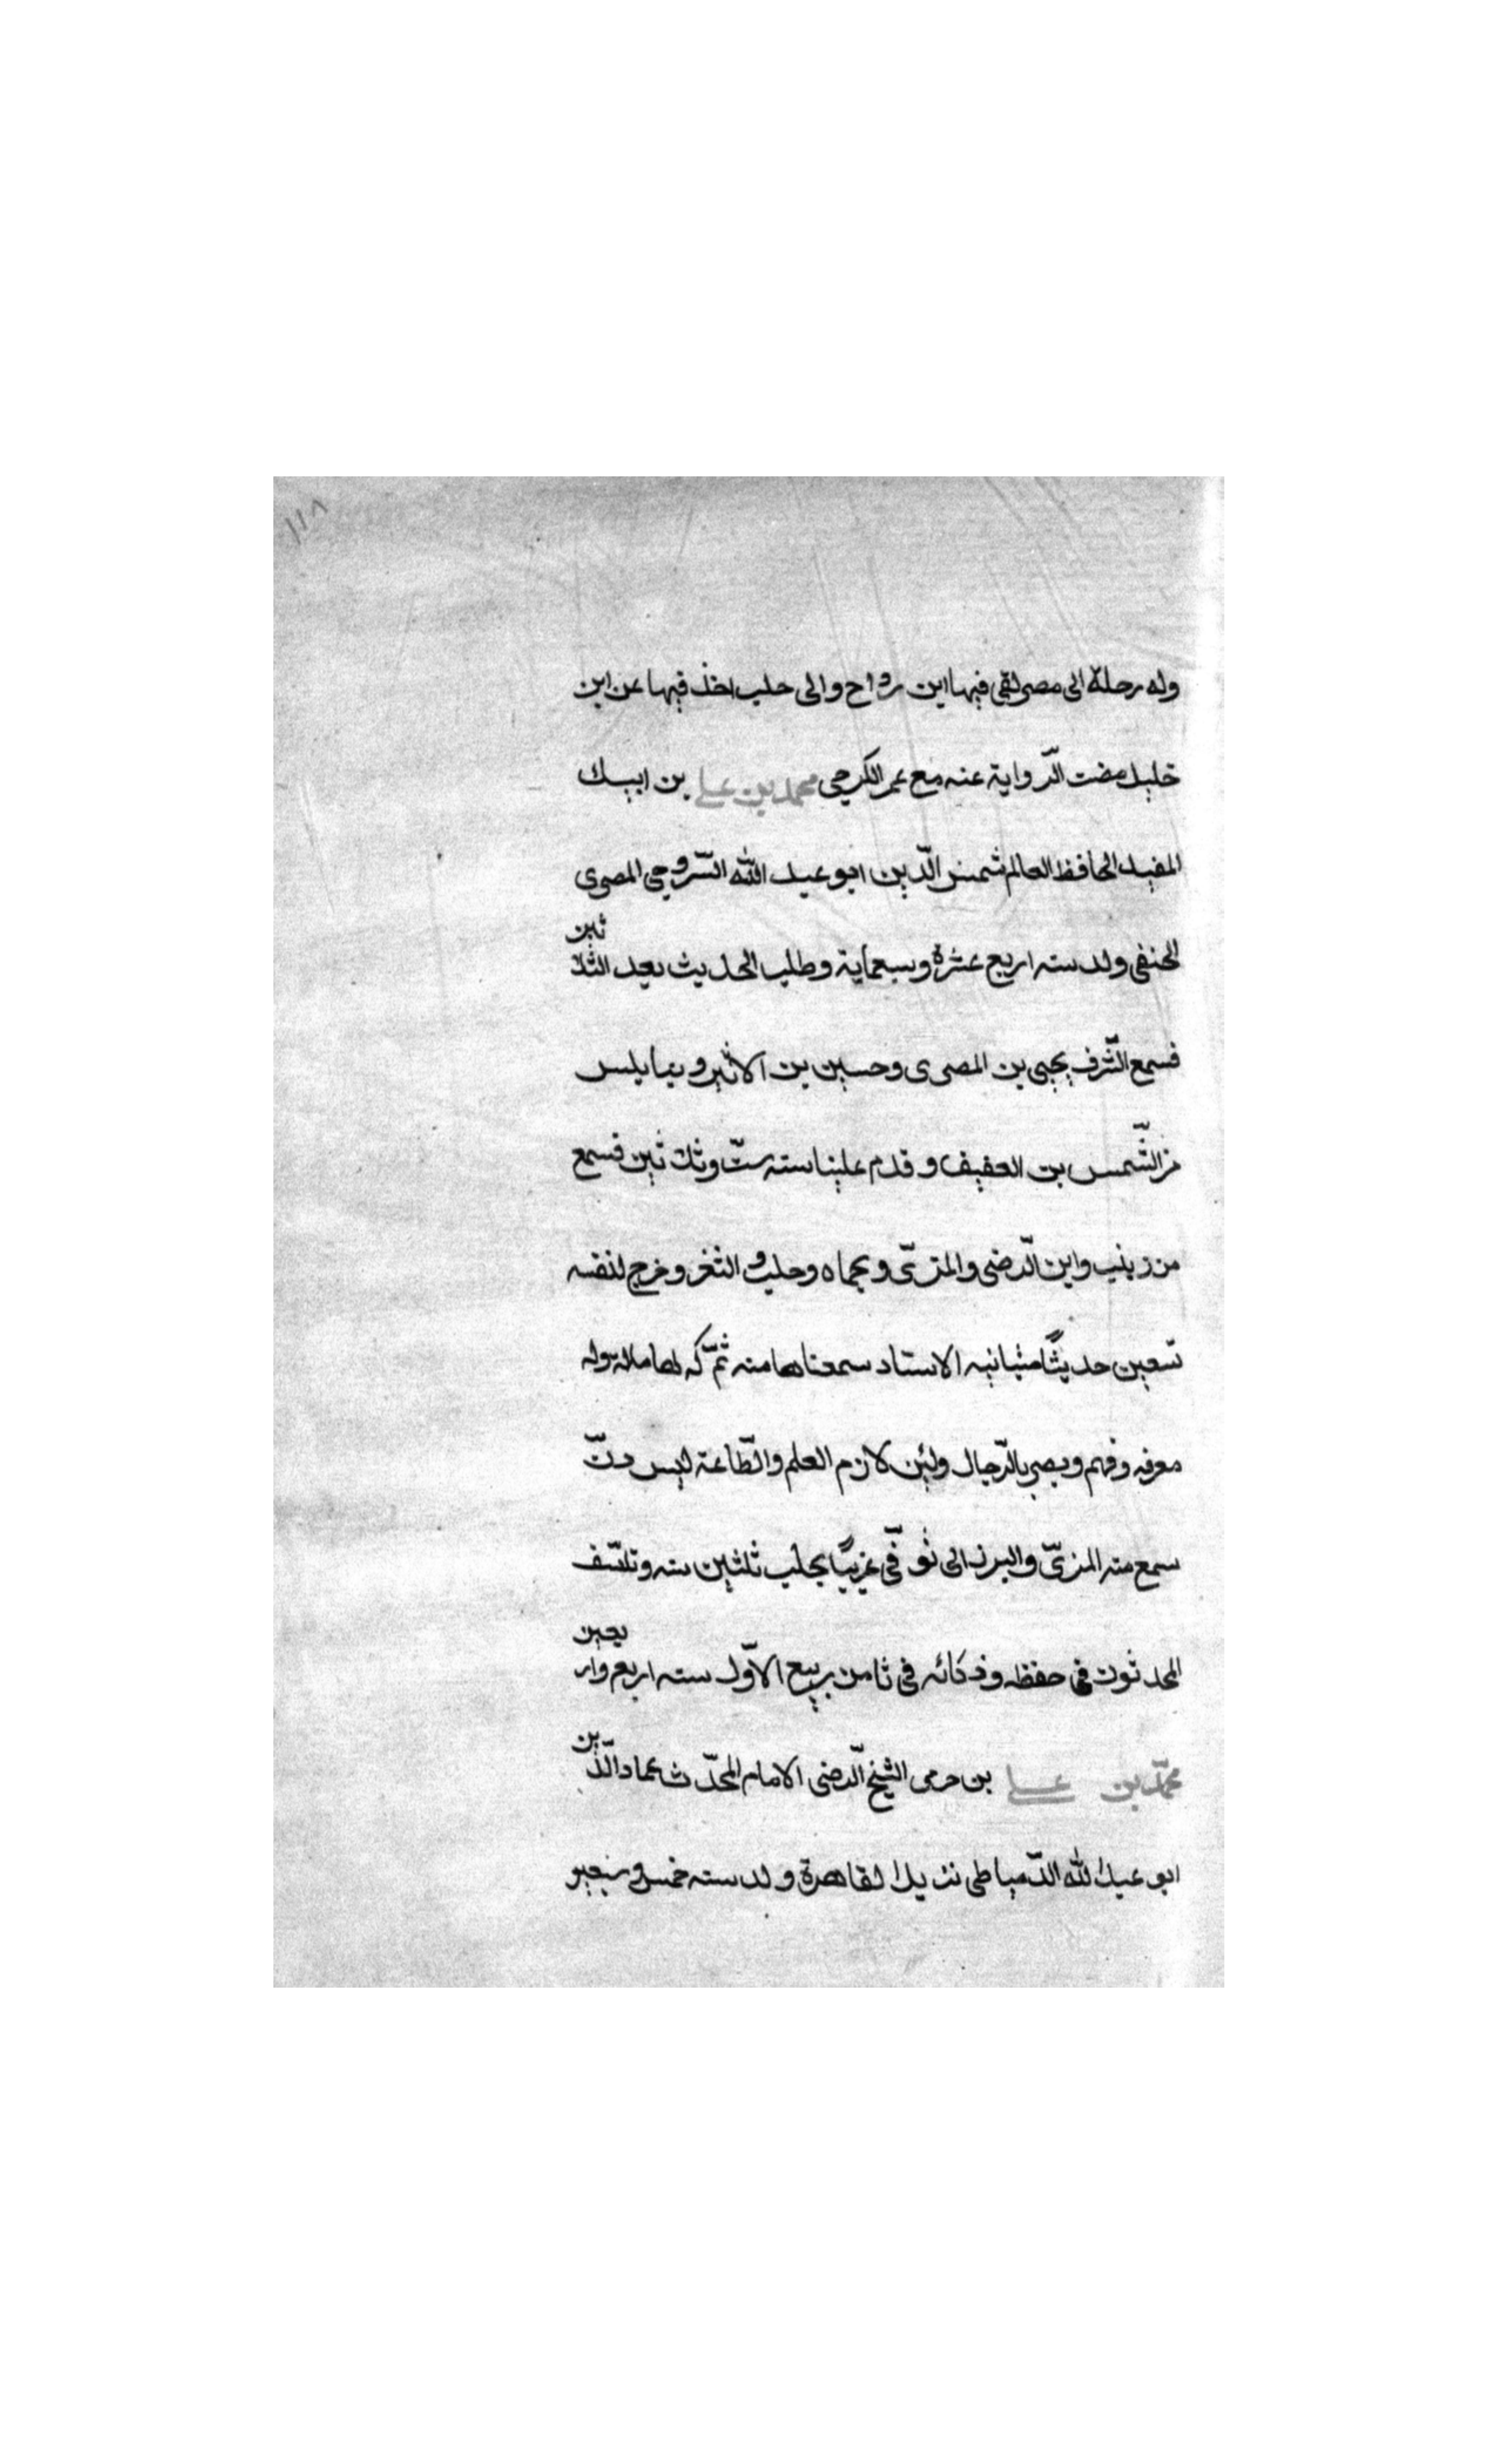 ١١٨
وله رحلة الى مصر لقي فيها ابن رواح والى حلب اخذ فيها عن ابن
خليل مضت الرّواية عنه مع عمر الكرجي محمد بن علي بن ايبك
المفيد الحافظ العالم شمس الدّين ابو عبد الله السّروجي المصرى
الحنفى ولد سنه اربع عشرة وسبعماية وطلب الحديث بعد الثلاثين
فسمع الشّرف يحيى بن المصرى وحسين بن الاثير وبنابلس
من الشّمس بن العفيف وقدم علينا سنه ستّ وثلاثين فسمع
من زينب وابن الرّضى والمزّى وبحماه وحلب والثغر وخرج لنفسه
تسعين حديثًا متباينه الاسناد سمعناها منه ثمّ كملها مائة وله
معرفه وفهم وبصر بالرّجال ولئن لازم العلم والطّاعة ليس دنّ
سمع منه المزىّ والبرزالى توفّى غريبًا بحلب ثلثين سنه وتاسّف
المحدثون فى حفظه وذكائه فى ثامن ربيع الاوّل سنه اربع واربعين
محمّد بن علي بن حرمى الشيخ الرّضى الامام المحدّث عماد الدّين
ابو عبد الله الدّمياطى نزيل القاهرة ولد سنه خمس